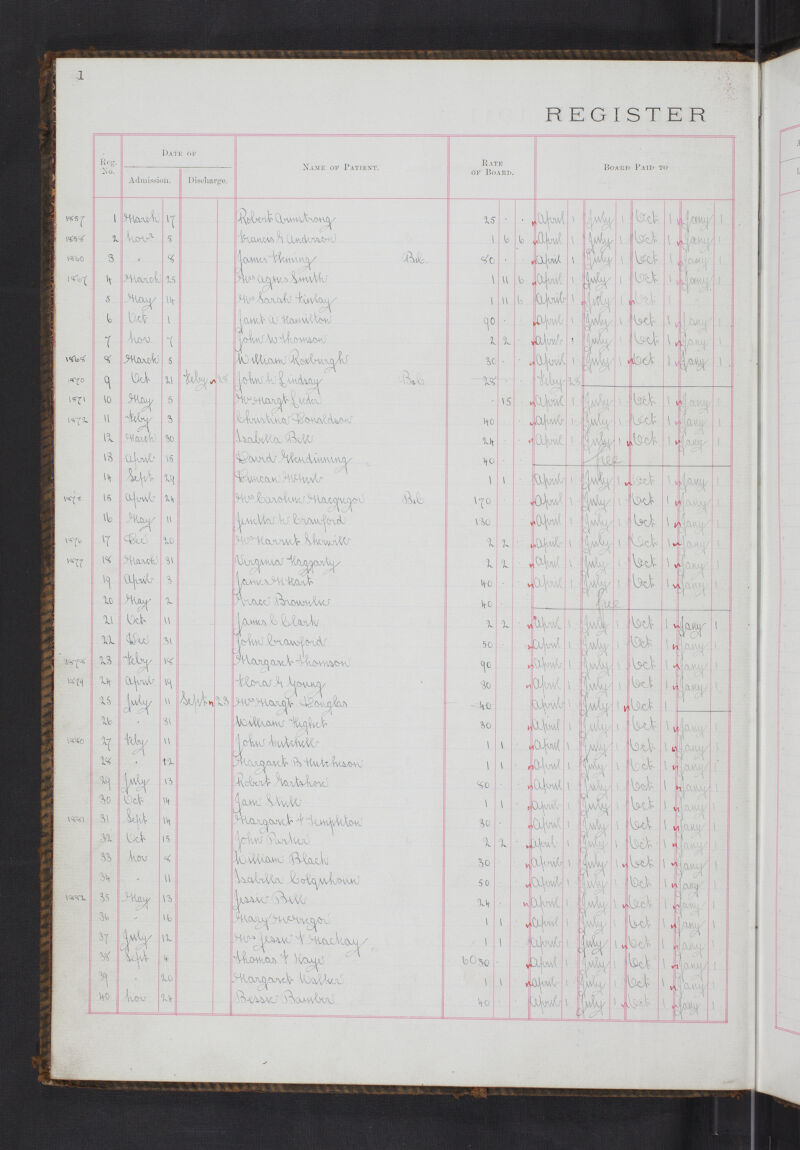 1
REGISTER
Reg. No. DATE OF NAME OF PATIENT. RATE OF BOARD. BOARD PAID TO
Admission. Discharge.
1857 1 March 17 Robert Armstrong 25 . . April 1 July 1 Oct 1 Jany 1
1858 2 Novr 5 Francis G Anderson 1 6 6 April 1 July 1 Oct 1 Jany 1
1860 3 " 8 James Fleming 80 . April 1 July 1 Oct 1 Jany 1
1867 4 March 25 Mrs Agnes Smith 1 11 6 April 1 July 1 Oct 1 Jany 1
5 May 14 Mrs Sarah Finlay 1 11 6 April 1 July 1 Oct 1
6 Oct 1 Janet A Hamilton 90 . April 1 July 1 Oct 1 Jany 1
7 Nov 7 John W Thomson 2 2 . April 1 July 1 Oct 1 Jany 1
1868 8 March 5 William Roxburgh 30 . April 1 July 1 Oct 1 Jany 1
1870 9 Oct 21 Feby 28 John Lindsay 28 . Feby 28
1871 10 May 5 Mrs Margt . 15 April 1 July 1 Oct 1 Jany 1
1872 11 Feby 3 Christina Donaldson 40 April 1 July 1 Oct 1 Jany 1
12 March 30 Isabella Bell 24 . April 1 July 1 Oct 1 Jany 1
13 April 15 David Glendinning 40 . free
14 Sept 29 Duncan 1 1 April 1 July 1 Oct 1 Jany 1
15 April 24 Mrs Caroline Macgregor 170 April 1 July 1 Oct 1 Jany 1
16 May 11 Crawford 130 April 1 July 1 Oct 1 Jany 1
1876 17 Dec 20 Mrs Harriet 2 2 . April 1 July 1 Oct 1 Jany 1
1877 18 March 31 Virginia Haggarty 2 2 . April 1 July 1 Oct 1 Jany 1
19 April 3 James Hart 40 . April 1 July 1 Oct 1 Jany 1
20 May 2 Grace Brownlie 40 . free
21 Oct 11 James C Clark 2 2 . April 1 July 1 Oct 1 Jany 1
22 Dec 31 John Crawford 50 . April 1 July 1 Oct 1 Jany 1
1878 23 Feby 18 Margaret Thomson 90 . April 1 July 1 Oct 1 Jany 1
1879 24 April 19 Flora G Young 30 . April 1 July 1 Oct 1 Jany 1
25 July 11 Sept 23 Mrs Margt Douglas 40 April 1 July 1 Oct 1
26 . 31 William Highet 30 April 1 July 1 Oct 1 Jany 1
1880 27 Feby 11 John Mitchell 1 1 . April 1 July 1 Oct 1 Jany 1
28 " 12 Margaret B Hutchison 1 1 . April 1 July 1 Oct 1 Jany 1
29 July 13 Robert Gartshore 80 . April 1 July 1 Oct 1 Jany 1
30 Oct 14 Jane 1 1 . April 1 July 1 Oct 1 Jany 1
1881 31 Sept 14 Margaret F Templeton 30 . April 1 July 1 Oct 1 Jany 1
32 Oct 15 John Parker 2 2 . April 1 July 1 Oct 1 Jany 1
33 Nov 8 William Black 30 April 1 July 1 Oct 1 Jany 1
34 . 11 Isabella Colquhoun 50 . April 1 July 1 Oct 1 Jany 1
1882 35 May 13 Jessie Bell 24 . April 1 July 1 Oct 1 Jany 1
36 . 16 Mary 1 1 . April 1 July 1 Oct 1 Jany 1
37 July 12 Mrs Jessie F Mackay 1 1 April 1 July 1 Oct 1 Jany 1
38 Sept 4 Thomas F Kaye 60 30 . April 1 July 1 Oct 1 Jany 1
39 . 20 Margaret Walker 1 1 . April 1 July 1 Oct 1 Jany 1
40 Nov 24 Bessie 40 . April 1 July 1 Oct 1 Jany 1